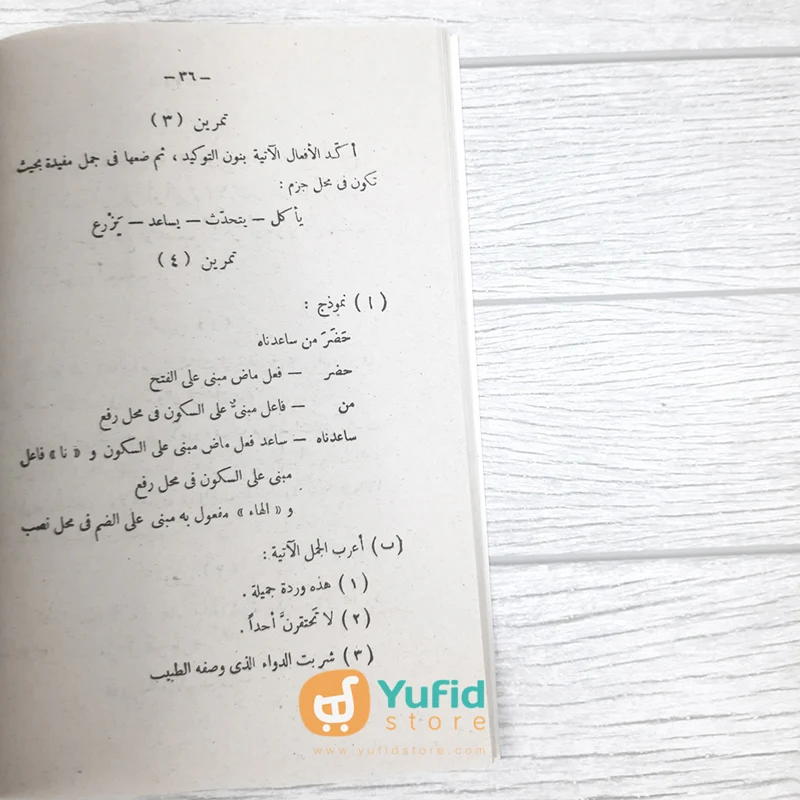 – ٣٦ –
تمرين (٣)
أكّد الأفعال الآتية بنون التوكيد ، ثم ضعها فى جمل مفيدة بحيث
تكون فى محل جزم :
يأكل – يتحدّث – يساعد – يَزْرع
تمرين (٤)
(ا) نموذج :
حَضَرَ من ساعدناه
حضر – فعل ماض مبنى على الفتح
من – فاعل مبنىٌّ على السكون فى محل رفع
ساعدناه – ساعد فعل ماض مبنى على السكون و « نا » فاعل
مبنى على السكون فى محل رفع
و « الهاء » مفعول به مبنى على الضم فى محل نصب
(ب) أعرب الجمل الآتية :
(١) هذه وردة جميلة .
(٢) لا تَحتقرنَّ أحداً .
(٣) شربت الدواء الذى وصفه الطبيب
Yufid
store
www.yufidstore.com